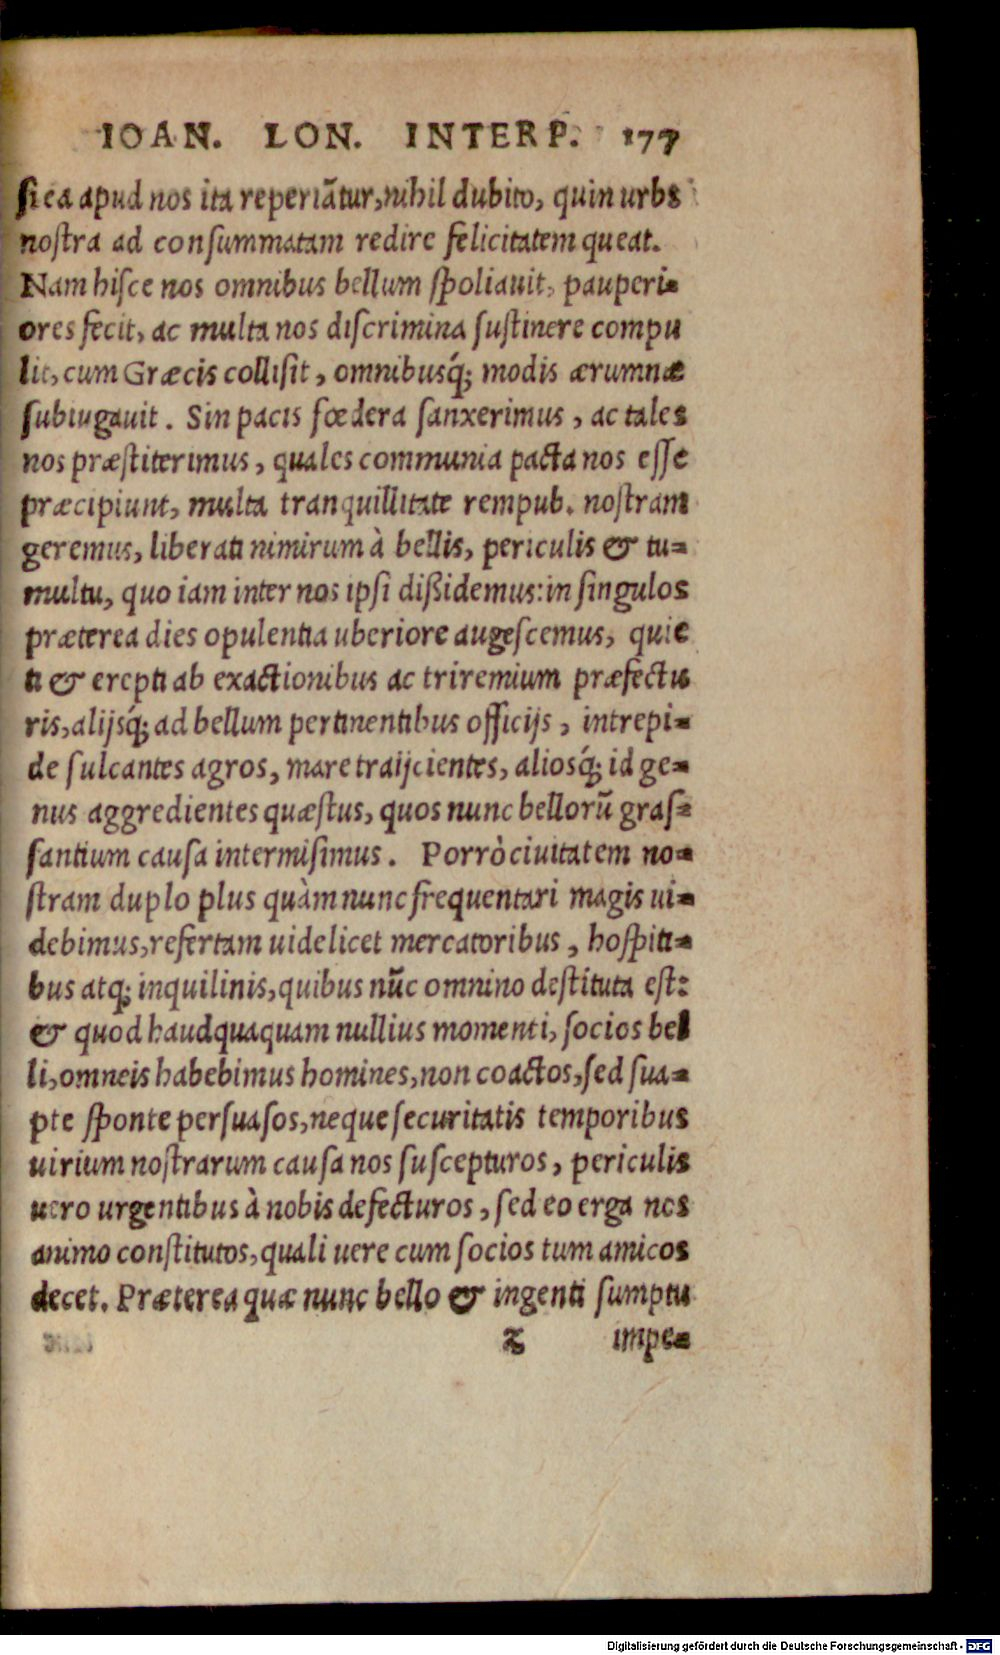 IOAN. LON. INTERP. 177
ſi ea apud nos ita reperiãtur, nihil dubito, quin urbs
noſtra ad conſummatam redire felicitatem queat.
Nam hiſce nos omnibus bellum ſpoliauit, pauperi-
ores fecit, ac multa nos diſcrimina ſuſtinere compu
lit, cum Græcis colliſit, omnibusq́; modis ærumnæ
ſubiugauit. Sin pacis fœdera ſanxerimus, ac tales
nos præſtiterimus, quales communia pacta nos eſſe
præcipiunt, multa tranquillitate rempub. noſtram
geremus, liberati nimirum à bellis, periculis & tu-
multu, quo iam inter nos ipſi dißidemus: in ſingulos
præterea dies opulentia uberiore augeſcemus, quie
ti & erepti ab exactionibus ac triremium præfectu
ris, alijsq́; ad bellum pertinentibus officijs, intrepi-
de ſulcantes agros, mare traijcientes, aliosq́; id ge-
nus aggredientes quæſtus, quos nunc bellorũ graſ-
ſantium cauſa intermiſimus. Porrò ciuitatem no-
ſtram duplo plus quàm nunc frequentari magis ui-
debimus, refertam uidelicet mercatoribus, hoſpiti-
bus atq; inquilinis, quibus nũc omnino deſtituta eſt:
& quod haudquaquam nullius momenti, ſocios bel
li, omneis habebimus homines, non coactos, ſed ſua-
pte ſponte perſuaſos, neque ſecuritatis temporibus
uirium noſtrarum cauſa nos ſuſcepturos, periculis
uero urgentibus à nobis defecturos, ſed eo erga nos
animo conſtitutos, quali uere cum ſocios tum amicos
decet. Præterea quæ nunc bello & ingenti ſumptu
z impe-
Digitalisierung gefördert durch die Deutsche Forschungsgemeinschaft - DFG